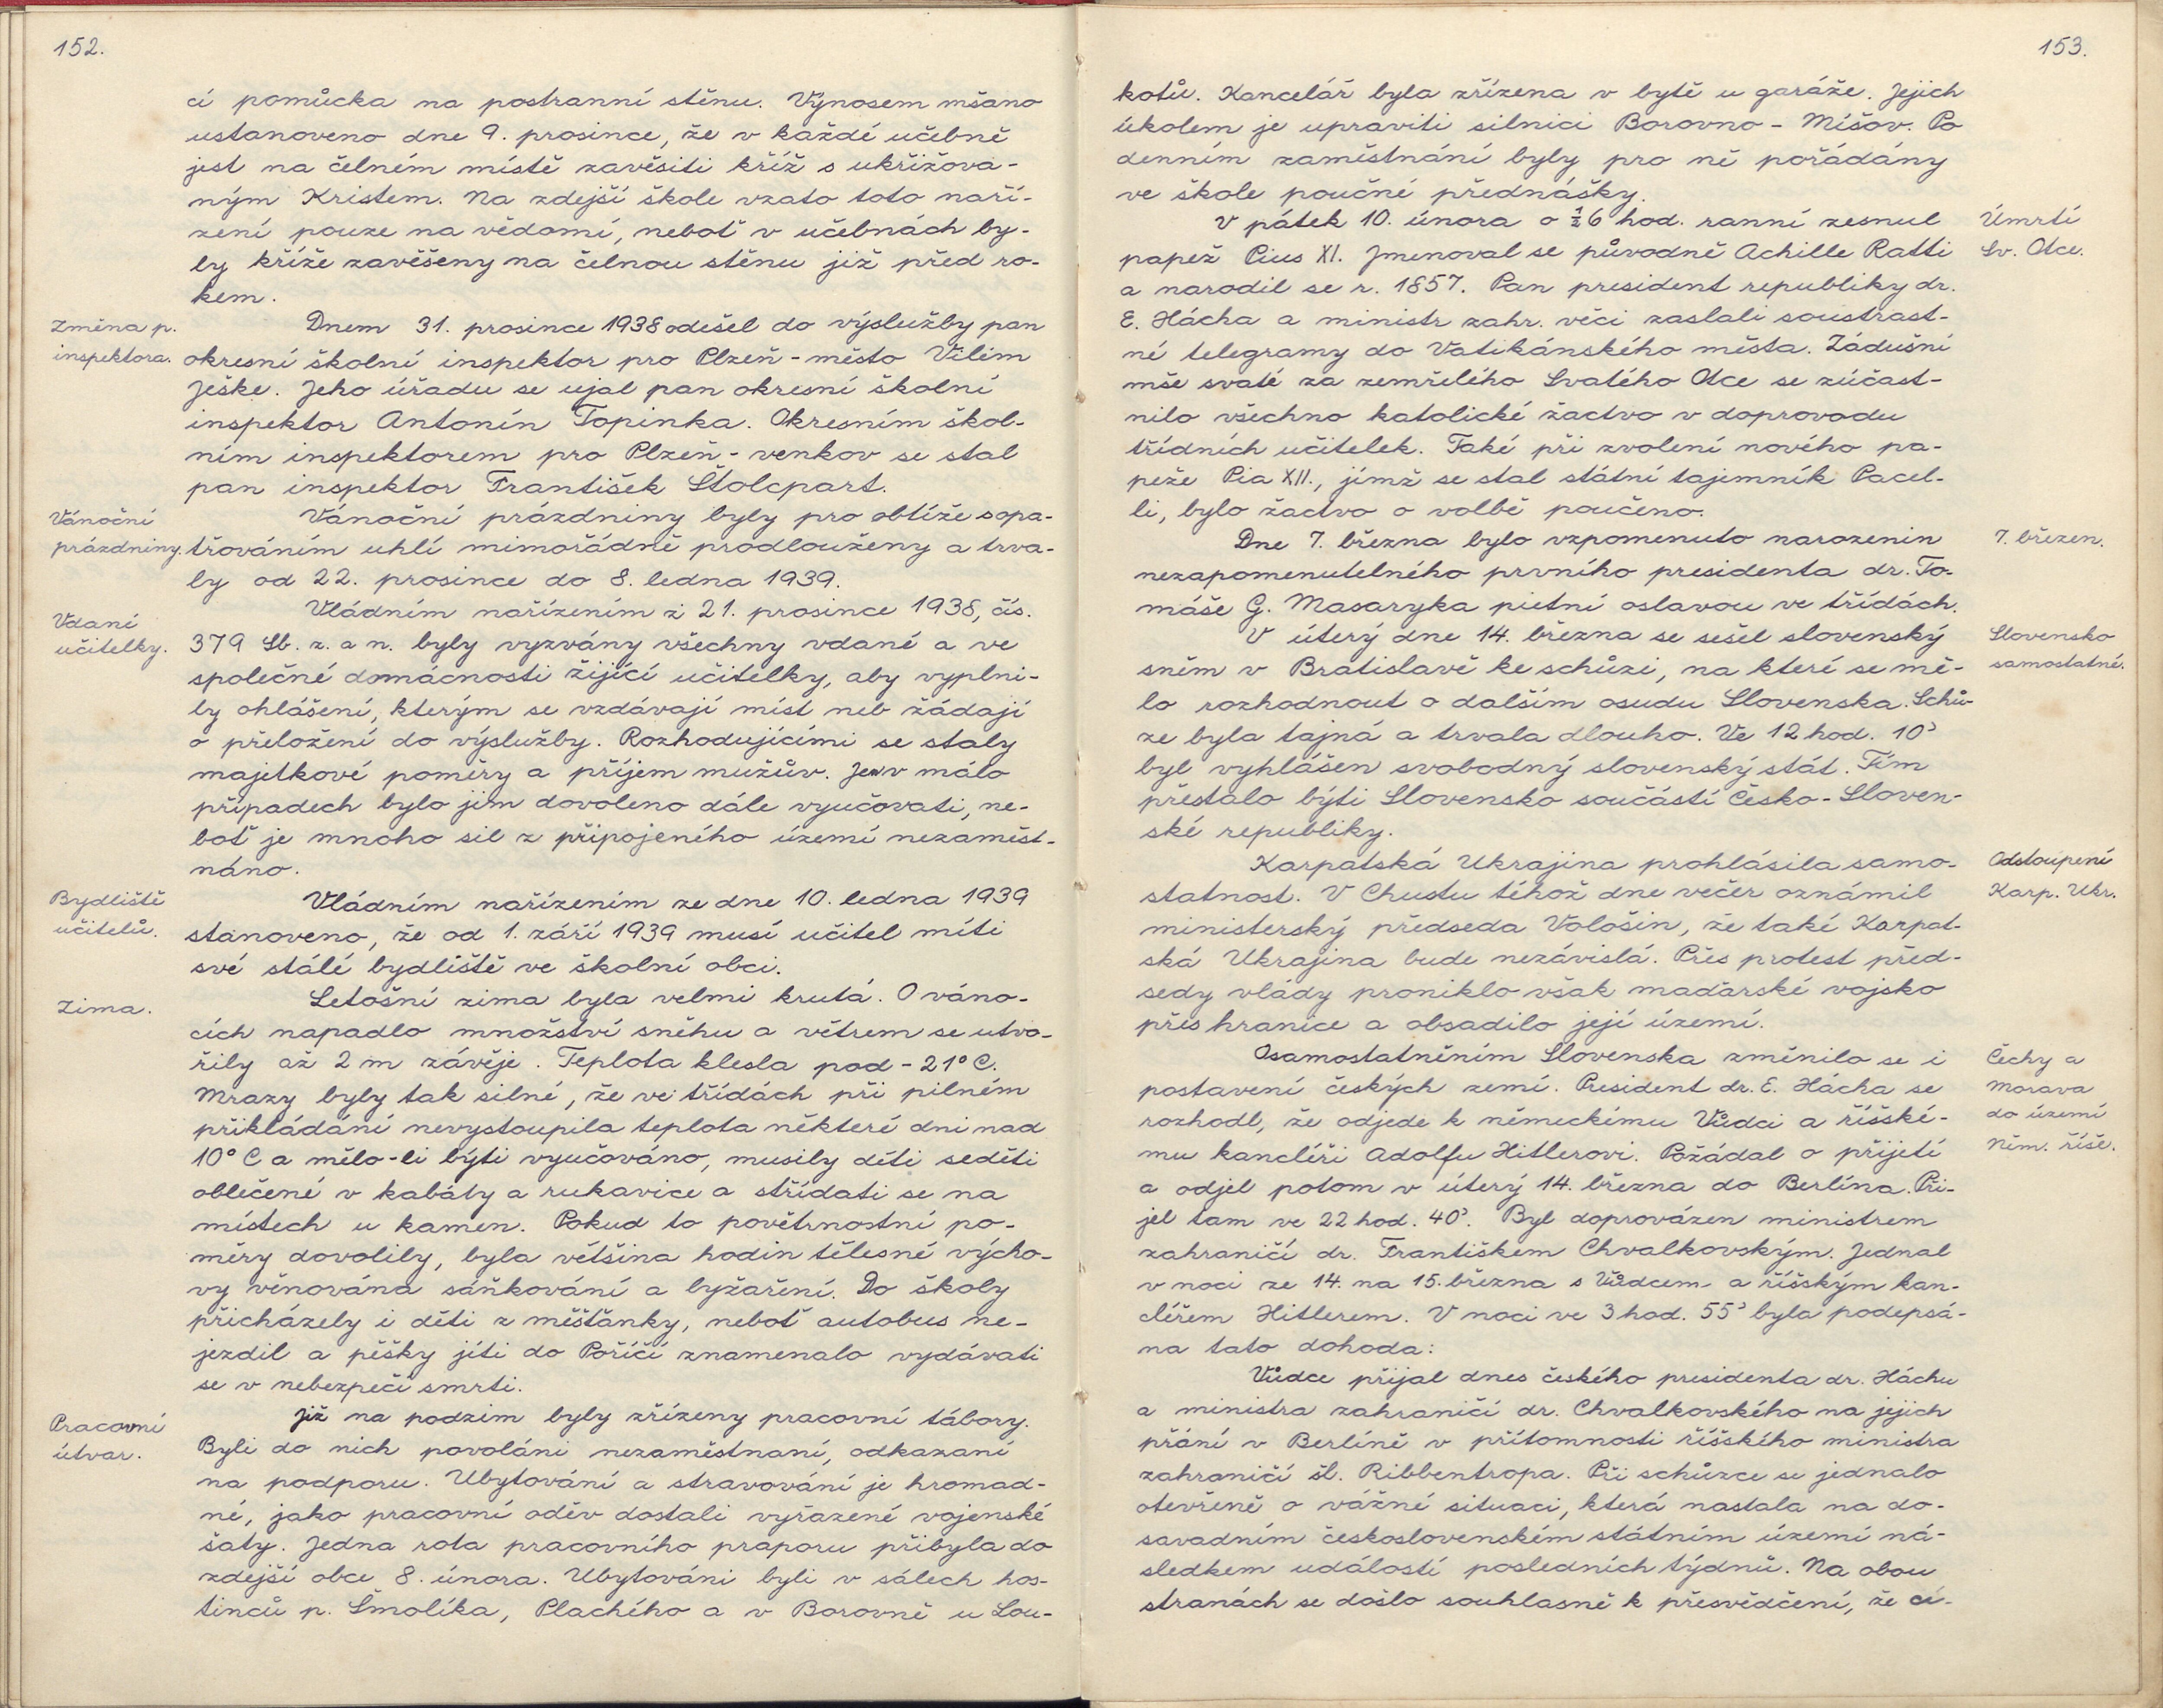 152.
cí pomůcka na postranní stěnu. Výnosem mšano
ustanoveno dne 9. prosince, že v každé učebně
jest na čelném místě zavěsiti kříž s ukřižova-
ným Kristem. Na zdejší škole vzato toto naří-
zení pouze na vědomí, neboť v učebnách by-
ly kříže zavěšeny na čelnou stěnu již před ro-
kem.
Změna p.
inspektora.
Dnem 31. prosince 1938 odešel do výslužby pan
okresní školní inspektor pro Plzeň - město Vilém
Ješke. Jeho úřadu se ujal pan okresní školní
inspektor Antonín Topinka. Okresním škol-
ním inspektorem pro Plzeň - venkov se stal
pan inspektor František Štolcpart.
Vánoční
prázdniny.
Vánoční prázdniny byly pro obtíže s opa-
třováním uhlí mimořádně prodlouženy a trva-
ly od 22. prosince do 8. ledna 1939.
Vdané
učitelky.
Vládním nařízením z 21. prosince 1938, čís.
379 Sb. z. a n. byly vyzvány všechny vdané a ve
společné domácnosti žijící učitelky, aby vyplni-
ly ohlášení, kterým se vzdávají míst neb žádají
o přeložení do výslužby. Rozhodujícími se staly
majetkové poměry a příjem mužův. Jen v málo
případech bylo jim dovoleno dále vyučovati, ne-
boť je mnoho sil z připojeného území nezaměst-
náno.
Bydliště
učitelů.
Vládním nařízením ze dne 10. ledna 1939
stanoveno, že od 1. září 1939 musí učitel míti
své stálé bydliště ve školní obci.
Zima.
Letošní zima byla velmi krutá. O váno-
cích napadlo množství sněhu a větrem se utvo-
řily až 2 m závěje. Teplota klesla pod - 21° C.
Mrazy byly tak silné, že ve třídách při pilném
přikládání nevystoupila teplota některé dni nad
10° C a mělo-li býti vyučováno, musily děti seděti
oblečené v kabáty a rukavice a střídati se na
místech u kamen. Pokud to povětrnostní po-
měry dovolily, byla většina hodin tělesné výcho-
vy věnována sáňkování a lyžaření. Do školy
přicházely i děti z měšťanky, neboť autobus ne-
jezdil a pěšky jíti do Poříčí znamenalo vydávati
se v nebezpečí smrti.
Pracovní
útvar.
Již na podzim byly zřízeny pracovní tábory.
Byli do nich povoláni nezaměstnaní, odkazaní
na podporu. Ubytování a stravování je hromad-
né, jako pracovní oděv dostali vyřazené vojenské
šaty. Jedna rota pracovního praporu přibyla do
zdejší obce 8. února. Ubytováni byli v sálech hos-
tinců p. Šmolíka, Plachého a v Borovně u Lou-
153.
kotů. Kancelář byla zřízena v bytě u garáže. Jejich
úkolem je upraviti silnici Borovno - Míšov. Po
denním zaměstnání byly pro ně pořádány
ve škole poučné přednášky.
V pátek 10. února o ½6 hod. ranní zesnul
papež Pius XI. Jmenoval se původně Achille Ratti
a narodil se r. 1857. Pan president republiky dr.
E. Hácha a ministr zahr. věcí zaslali soustrast-
né telegramy do Vatikánského města. Zádušní
mše svaté za zemřelého Svatého Otce se zúčast-
nilo všechno katolické žactvo v doprovodu
třídních učitelek. Také při zvolení nového pa-
peže Pia XII., jímž se stal státní tajemník Pacel-
li, bylo žactvo o volbě poučeno.
Úmrtí
Sv. Otce.
Dne 7. března bylo vzpomenuto narozenin
nezapomenutelného prvního presidenta dr. To-
máše G. Masaryka pietní oslavou ve třídách.
7. březen.
V úterý dne 14. března se sešel slovenský
sněm v Bratislavě ke schůzi, na které se mě-
lo rozhodnout o dalším osudu Slovenska. Schů-
ze byla tajná a trvala dlouho. Ve 12 hod. 10'
byl vyhlášen svobodný slovenský stát. Tím
přestalo býti Slovensko součástí Česko-Sloven-
ské republiky.
Slovensko
samostatné.
Karpatská Ukrajina prohlásila samo-
statnost. V Chustu téhož dne večer oznámil
ministerský předseda Vološin, že také Karpat-
ská Ukrajina bude nezávislá. Přes protest před-
sedy vlády proniklo však maďarské vojsko
přes hranice a obsadilo její území.
Odstoupení
Karp. Ukr.
Osamostatněním Slovenska změnilo se i
postavení českých zemí. President dr. E. Hácha se
rozhodl, že odjede k německému Vůdci a říšské-
mu kancléři Adolfu Hitlerovi. Požádal o přijetí
a odjel potom v úterý 14. března do Berlína. Při-
jel tam ve 22 hod. 40'. Byl doprovázen ministrem
zahraničí dr. Františkem Chvalkovským. Jednal
v noci ze 14. na 15. března s Vůdcem a říšským kan-
cléřem Hitlerem. V noci ve 3 hod. 55' byla podepsá-
na tato dohoda:
Čechy a
Morava
do území
Něm. říše.
Vůdce přijal dnes českého presidenta dr. Háchu
a ministra zahraničí dr. Chvalkovského na jejich
přání v Berlíně v přítomnosti říšského ministra
zahraničí šl. Ribbentropa. Při schůzce se jednalo
otevřeně o vážné situaci, která nastala na do-
savadním československém státním území ná-
sledkem událostí posledních týdnů. Na obou
stranách se došlo souhlasně k přesvědčení, že cí-